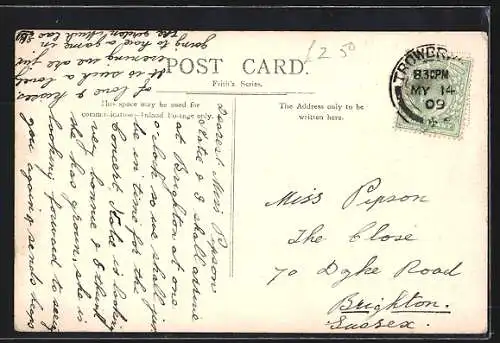 POST CARD.
Frith's Series.
This space may be used for
communication—Inland Postage only.
The Address only to be
written here.
£2.50
TROWBRI
8.30PM
MY 14
09
Miss Pipson
The Close
70 Dyke Road
Brighton.
Sussex.
Dearest Miss Pipson
Katie & I shall arrive
at Brighton at one
o'clock so we shall just
be in time for the
Concert. Katie is looking
very bonnie & I think
she has grown, she is
looking forward to seeing
you again & sends heaps
of love & kisses.
It is such a lovely
evening we are just
going to have a game in
the garden